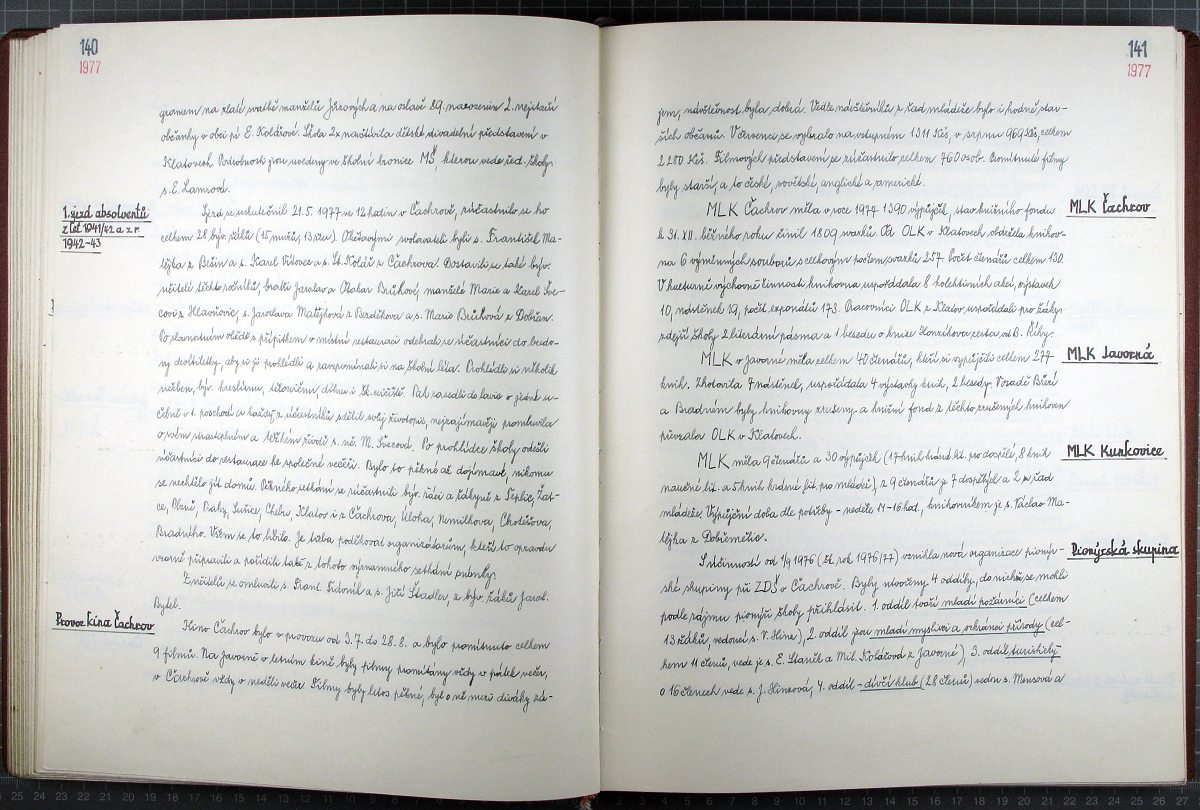 140
1977
gramem na zlaté svatbě manželů Jůzových a na oslavě 89. narozenin 2. nejstarší
občanky v obci pí E. Kolářové. Škola 2x navštívila dětské divadelní představení v
Klatovech. Podrobnosti jsou uvedeny ve školní kronice MŠ, kterou vede řed. školy
s. E. Lamrová.
1. sjezd absolventů
z let 1941/42 a z r.
1942-43
Sjezd se uskutečnil 21.5. 1977 ve 12 hodin v Čachrově, zúčastnilo se ho
celkem 28 býv. žáků (15 mužů, 13 žen). Obětavými svolavateli byli s. František Ma-
tějka z Běšin a s. Karel Vítovec a s. St. Kolář z Čachrova. Dostavili se také býv.
učitelé těchto ročníků, bratři Jaroslav a Otakar Brůhové, manželé Marie a Karel Šve-
covi z Hlavňovic, s. Jaroslava Matějková z Bezděkova a s. Marie Brůhová z Dobřan.
Po slavnostním obědě s přípitkem v místní restauraci odebrali se účastníci do budo-
vy devítiletky, aby si ji prohlédli a zavzpomínali si na školní léta. Prohlédli si několik
učeben, býv. kreslírnu, tělocvičnu, dílnu i šk. cvičiště. Pak zasedli do lavic v jedné u-
čebně v 1. poschodí a každý z účastníků sdělil svůj životopis, nejzajímavěji promluvila
o svém strastiplném a těžkém životě s. uč. M. Švecová. Po prohlídce školy odešli
účastníci do restaurace ke společné večeři. Bylo to pěkné až dojímavé, nikomu
se nechtělo jít domů. Pěkného setkání se zúčastnili býv. žáci a žákyně z Teplic, Žat-
ce, Plzně, Prahy, Sušice, Chebu, Klatov i z Čachrova, Úloha, Nemilkova, Chotěšova,
Bradného. Všem se to líbilo. Je třeba poděkovat organizátorům, kteří to opravdu
vzorně připravili a pořídili také z tohoto významného setkání snímky.
Z učitelů se omluvili s. Frant. Sidonil a s. Jiří Štadler, z býv. žáků Jarol.
Bytel.
Provoz kina Čachrov
Kino Čachrov bylo v provozu od 3.7. do 28.8. a bylo promítnuto celkem
9 filmů. Na Javorné v letním kině byly filmy promítány vždy v pátek večer,
v Čachrově vždy v neděli večer. Filmy byly letos pěkné, byl o ně mezi diváky zá-
141
1977
jem, návštěvnost byla dobrá. Vedle návštěvníků z řad mládeže bylo i hodně star-
ších občanů. V červenci se vybralo na vstupném 1311 Kčs, v srpnu 969 Kčs, celkem
2280 Kčs. Filmových představení se zúčastnilo celkem 760 osob. Promítnuté filmy
byly starší, a to české, sovětské, anglické a americké.
MLK Čachrov
MLK Čachrov měla v roce 1977 1390 výpůjček, stav knižního fondu
k 31. XII. běžného roku činil 1809 svazků. Od OLK v Klatovech obdržela knihov-
na 6 výměnných souborů s celkovým počtem svazků 257. Počet čtenářů celkem 130.
V kulturně výchovné činnosti knihovna uspořádala 8 kolektivních akcí, výstavek
10, nástěnek 19, počet exponátů 173. Pracovnicí OLK z Klatov uspořádali pro žáky
zdejší školy 2 literární pásma a 1 besedu o knize Honzíkova cesta od B. Říhy.
MLK Javorná
MLK v Javorné měla celkem 40 čtenářů, kteří si vypůjčili celkem 277
knih. Zhotovila 7 nástěnek, uspořádala 4 výstavky knih, 2 besedy. V osadě Březí
a Bradném byly knihovny zrušeny a knižní fond z těchto zrušených knihoven
převzala OLK v Klatovech.
MLK Kunkovice
MLK měla 9 čtenářů a 30 výpůjček (17 knih krásné lit. pro dospělé, 8 knih
naučné lit. a 5 knih krásné lit. pro mládež), z 9 čtenářů je 7 dospělých a 2 z řad
mládeže. Výpůjční doba dle potřeby - neděle 14-16 hod., knihovníkem je s. Václav Ma-
tějka z Dobřemilic.
Pionýrská skupina
S účinností od 1/9 1976 (šk. rok 1976/77) vznikla nová organizace pionýr-
ské skupiny při ZDŠ v Čachrově. Byly utvořeny 4 oddíly, do nichž se mohli
podle zájmu pionýři školy přihlásit. 1. oddíl tvoří mladí požárníci (celkem
13 žáků, vedoucí s. V. Hine), 2. oddíl jsou mladí myslivci a ochránci přírody (cel-
kem 11 členů, vede je s. E. Staněk a Mil. Kolářová z Javorné), 3. oddíl turistický
o 16 členech vede s. J. Hinesová, 4. oddíl - dívčí klub (28 členů) vedou s. Mensová a